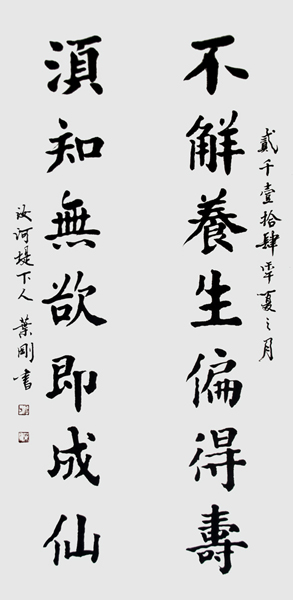 貳千壹拾肆年夏之月
不解養生偏得壽
須知無欲即成仙
汝河堤下人 葉剛書